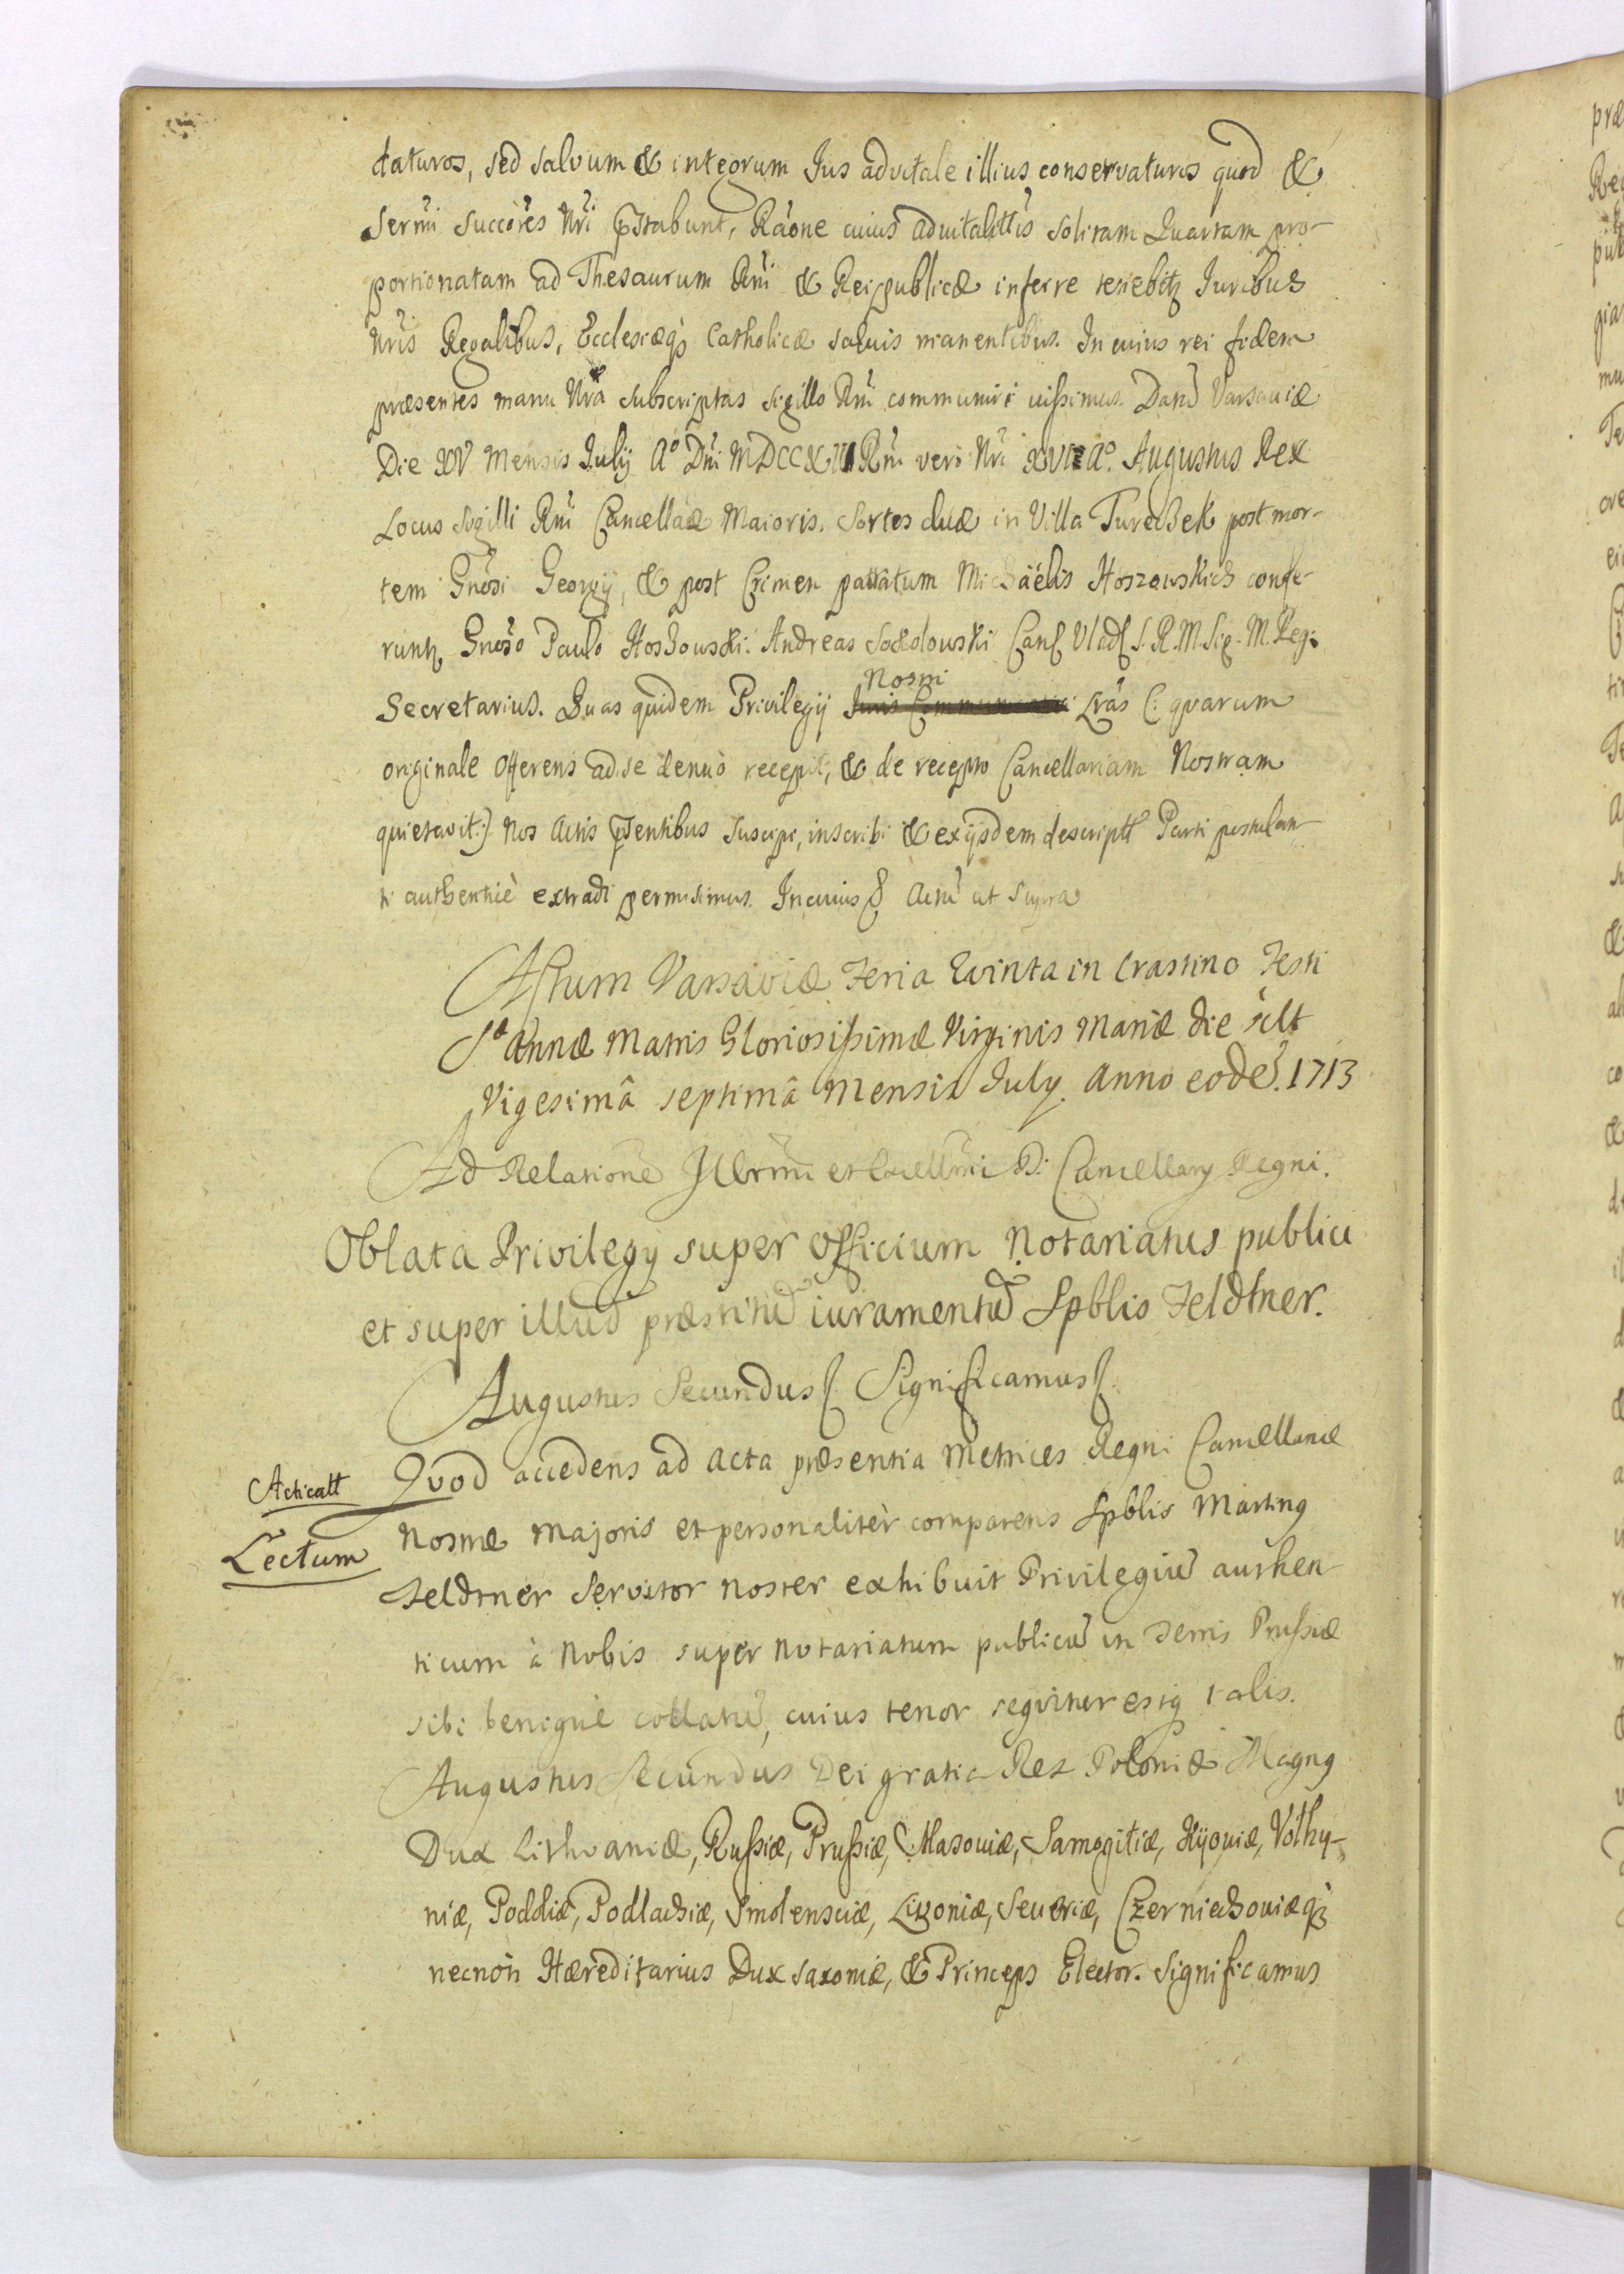 daturos, sed salvum & integrum Jus advitale illius conservaturos quod &
Sermi Succōres Nri pstabunt, Raōne cuius advitalittis solitam Quartam pro-
portionatam ad Thesaurum Rni & Reipublicæ inferre tenebitz Juribus
Nris Regalibus, Ecclesiæq3 Catholicæ salvis manentibus. In cuius rei fidem
præsentes manu Nra subscriptas sigillo Rni communiri iussimus. Dand Varsaviæ
Die XV Mensis July Aº Dni Rni vero Nri Aº. Augustus Rex
Locus Sigilli Rni Cancellæ Maioris. Sortes duæ in Villa Tureczek post mor-
tem Gnōsi Georgij, & post Crimen patratum Michäelis Hoszowskich confe-
runtz Gnōso Paulo Hoszowski. Andreas Sokolowski Canc Vlad S. R. M. Sig. M. Reg:
Nostri
Secretarius. Quas quidem Privilegij Lrās (: quarum
originale Offerens ad se denuò recepit, & de recepto Cancellariam Nostram
quietavit:) Nos Actis psentibus suscipi, inscribi & ex ijsdem descriptt Parti postulan-
ti authenticè extradi permisimus. In cuius Actū ut supra
Actum Varsaviæ Feria Quinta in Crastino Festi
S. Annæ Matris Gloriosissimæ Virginis Mariæ die scilt
Vigesimâ septimâ Mensis July. Anno eodē. 1713
Ad Relationē Illrmi et Excellmi D. Cancellary Regni.
Oblata Privilegy super Officium Notariatus publici
et super illud præstitū iuramentū Spblis Feldtner.
Augustus Secundus Significamus
Acticatt
Quod accedens ad Acta præsentia Metrices Regni Cancellariæ
Lectum
Nostræ Majoris et personalitèr comparens Spblis Martin9
Feldtner Servitor Noster exhibuit Privilegiū authen
ticum à Nobis super Notariatum publicū in Terris Prussiæ
sibi benignè collatū, cuius tenor sequitur estq talis.
Augustus Secundus Dei gratia Rex Poloniæ Magn9
Dux Lithvaniæ, Russiæ, Prussiæ, Masoviæ, Samogitiæ, Kijoviæ, Volhy-
niæ, Podoliæ, Podlachiæ, Smolensciæ, Livoniæ, Severiæ, Czerniechoviæq3
necnòn Hæreditarius Dux Saxoniæ, & Princeps Elector. Significamus